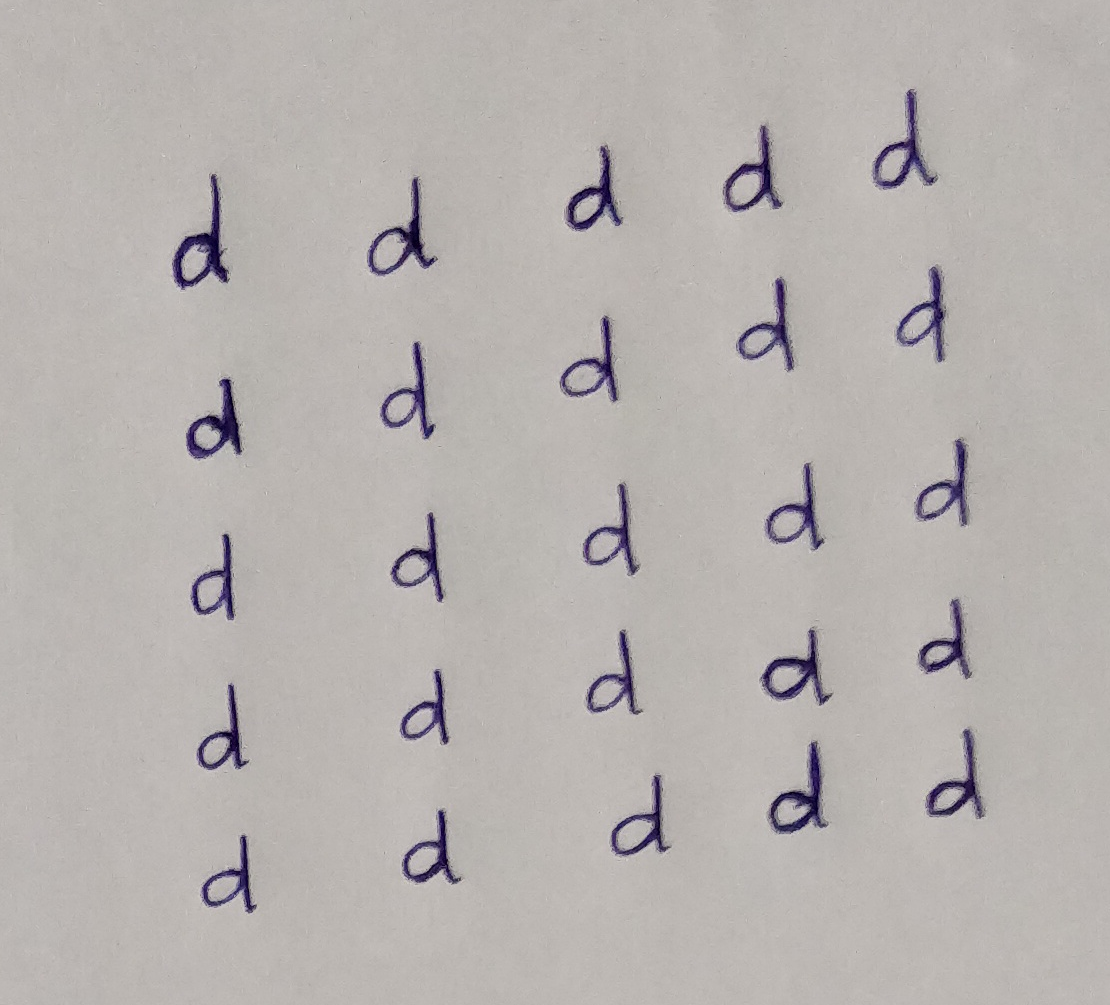 d d d d d
d d d d d
d d d d d
d d d d d
d d d d d